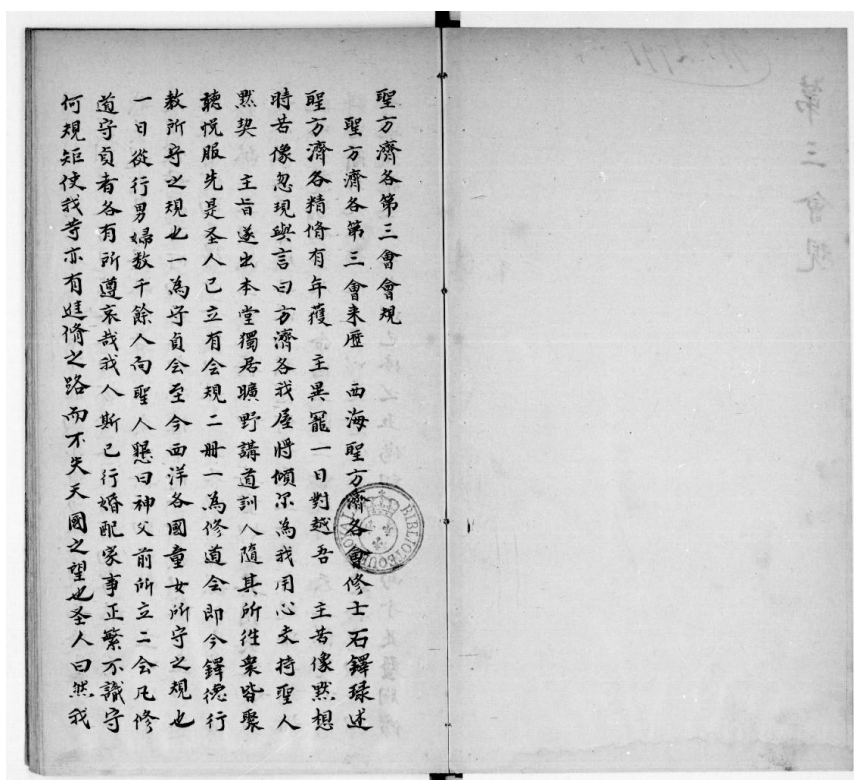 聖方濟各第三會會規
聖方濟各第三會来歷 西海聖方濟各會修士石鐸琭述
聖方濟各精脩有年獲 主異寵一日對越吾 主苦像黙想
時苦像忽現與言曰方濟各我屋將傾尔為我用心支持聖人
黙契 主旨遂出本堂獨居曠野講道訓人隨其所徃衆皆聚
聽悅服先是圣人已立有会規二册一為修道会即今鐸德行
教所守之規也一為守貞会至今西洋各國童女所守之規也
一日從行男婦数千餘人向聖人懇曰神父前所立二会凡修
道守貞者各有所遵哀哉我人斯已行婚配家事正繁不識守
何規矩使我等亦有進脩之路而不失天國之望也圣人曰然我
第三會規
BIBLIOTHEQUE ROYALE